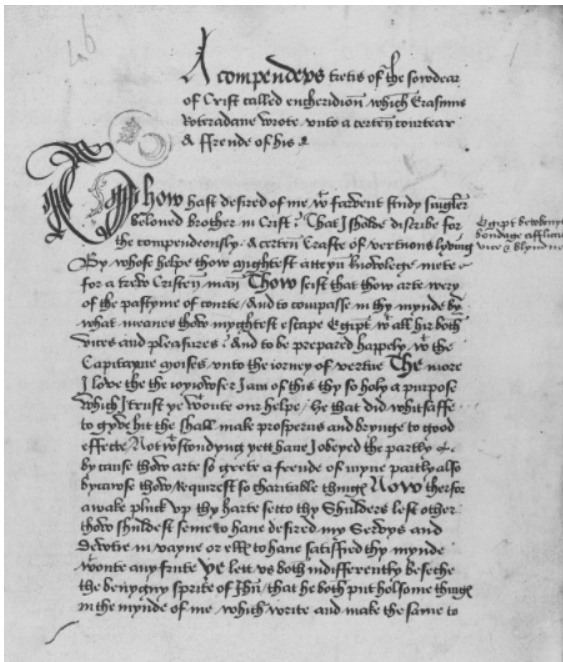 A compendeus tretis of the sowdear
of Crist called encheridion which Erasmus
Roteradame wrote unto a certen courtear
& ffrende of his
Thow hast desired of me wt farvent study singler
beloved brother in Crist: That I sholde discribe for
the compendeously a certen Crafte of vertuous lyving
By whose helpe thow mightest atteyn knowlege mete
for a trew Cristen man Thow seist that thow arte wery
of the pastyme of courte And to compasse in thy mynde by
what meanes thow myghtest escape Egipt wt all hir both
vices and pleasures: And to be prepared happely wt the
Capitayne moises unto the iorney of vertue The more
I love the the ioyowser I am of this thy so holy a purpose
Which I trust ye wtoute our helpe he that did whitsaffe
to gyve hit the shall make prosperus and brynge to good
effecte Not wtstondyng yett have I obeyed the partly
by cause thow arte so grete a frende of myne partly also
bycawse thow Requirest so charitable things Now therfor
awake pluck up thy harte setto thy Shulders lest other
thow shuldest seme to have desired my Servys and
Devotie in vayne or ells to have satisfied thy mynde
wtoute any frute ye lett us both indifferently beseche
the benygny sprite of Jhu that he both put holsome things
in the mynde of me which write and make the same to
Egipt betokenyt
bondage afflicti
vice & blyndne